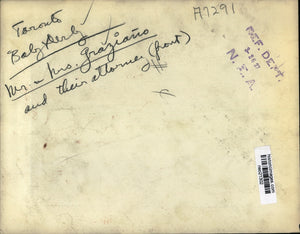 Toronto
"Baby Derby"
Mr. & Mrs. Graziano
and their attorney (front)
A7291
REF. DEPT.
N. E. A.